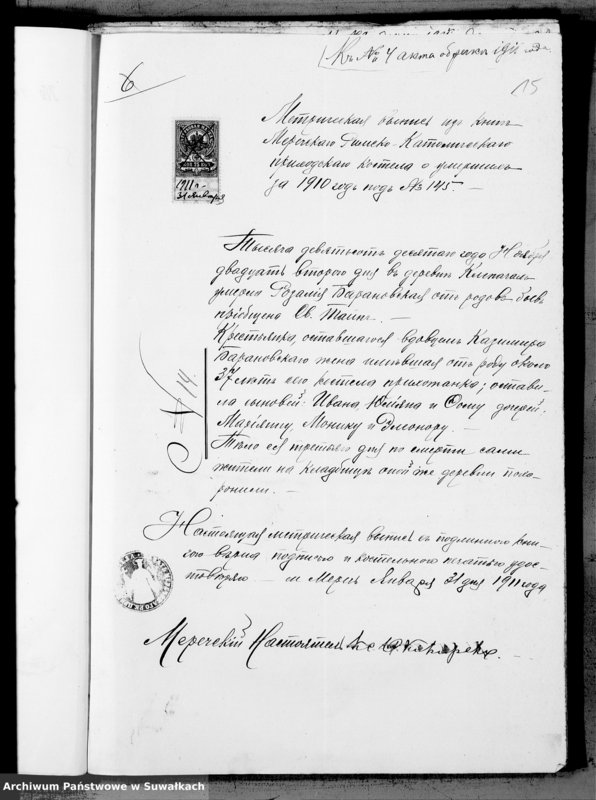 Къ № 4 акта о бракѣ 1911 года
6
15
1911 г.
31 Января
Метрическая выпись изъ книгъ
Меречскаго Римско-Католическаго
приходскаго костела о умершихъ
за 1910 годъ подъ № 145. —
Тысяча девятьсотъ десятаго года Ноября
двадцать второго дня въ деревнѣ
умерла Розалія Барановская отъ родовъ
пріобщена Св. Таинъ. —
Крестьянка, оставшагося вдовцемъ Казимира
Барановскаго жена имѣвшая отъ роду около
37 лѣтъ сего костела прихожанка; остави-
ла сыновей: Ивана, и Ѳому дочерей:
Маріянну, Монику и Элеонору. —
Тѣло ея третьяго дня по смерти сами
жители на кладбищѣ оной же деревни похо-
ронили. —
№ 14.
Настоящая метрическая выпись съ подлинною кни-
гою вѣрна подписью и костельною печатью удос-
товѣряю — м. Меречь Января 31 дня 1911 года
Меречскій Настоятель
Archiwum Państwowe w Suwałkach